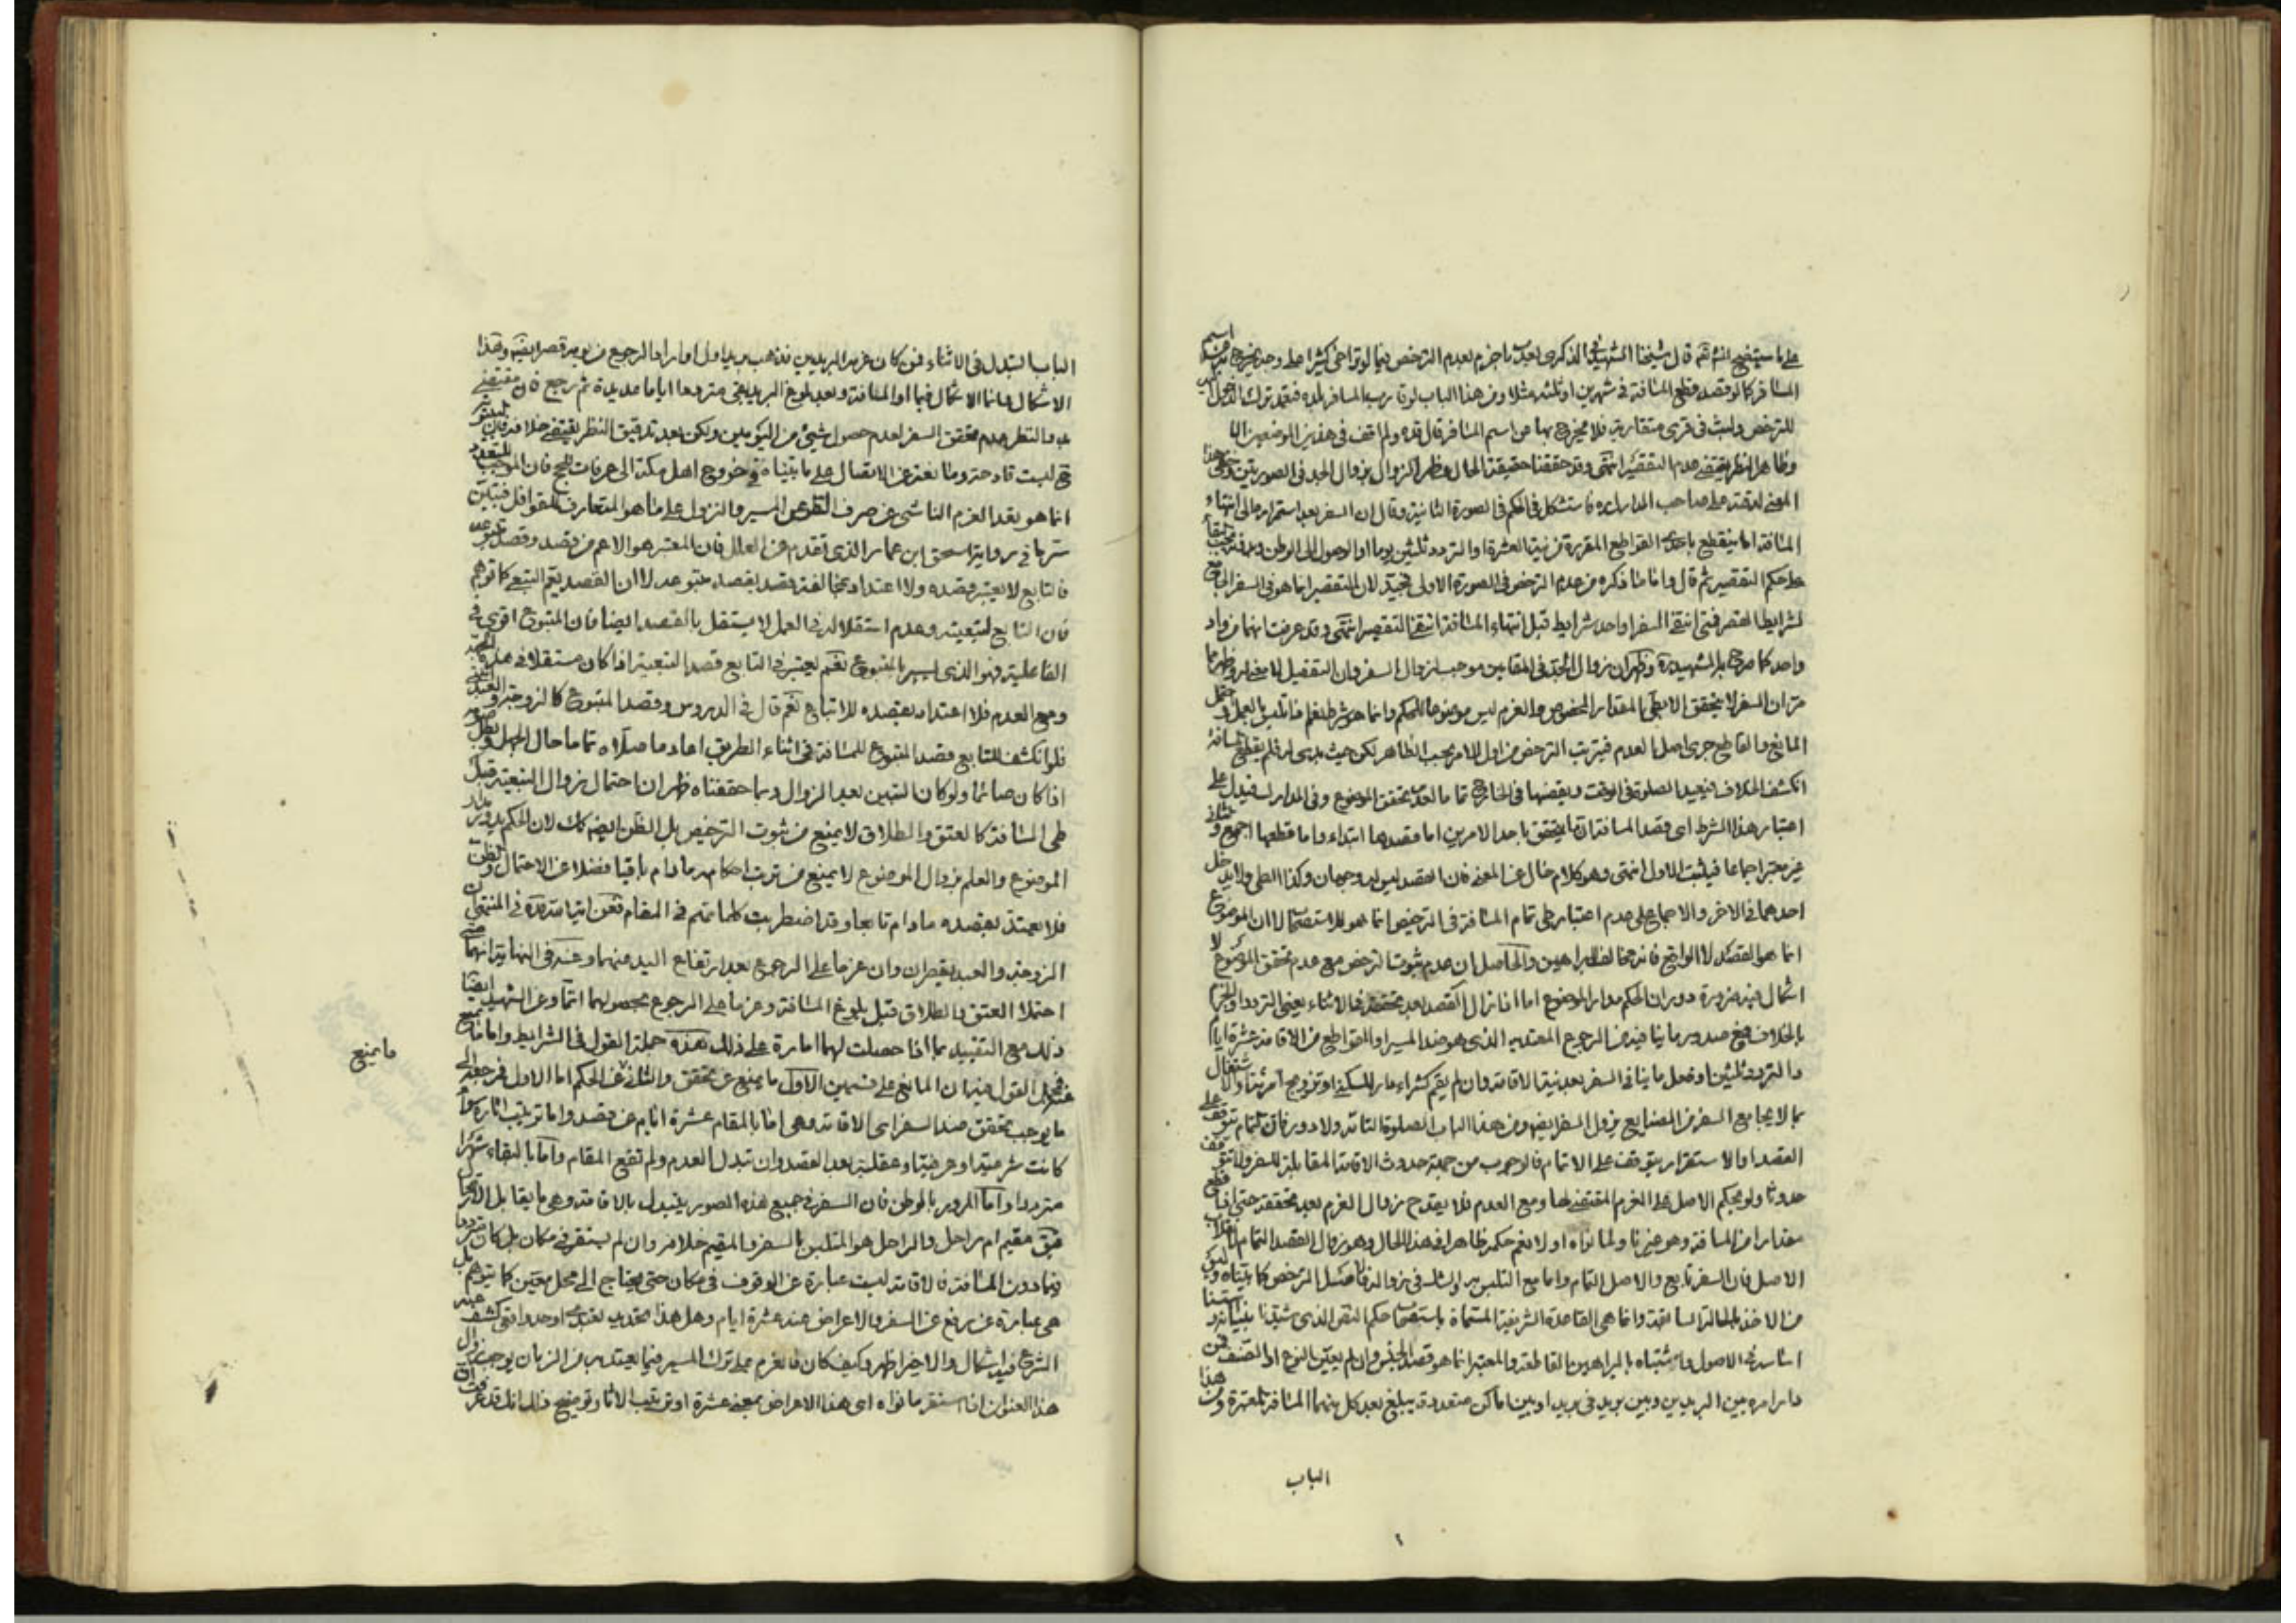 على ما سيتضح انشه تعه قال شيخنا الشهيد في الذكرى بعد ما جزم بعدم الترخص فيما لو تراخى كثيرا على وجه يخرج عن اسم
المسافر كما لو قصد قطع المسافة في شهرين او ثلثة مثلا ومن هذا الباب لو قارب المسافر بلده فتعمد ترك الدخول اليه
للترخص ولبث في قرى متقاربة فلا يخرج بها من اسم المسافر قال قده ولم اقف في هذين الموضعين
وظاهر النظر يقتضي عدم التقصير انتهى وقد حققنا حقيقة الحال وظهر ان الزوال بزوال الجد في الصورتين وخفى هذا
المعنى لدقته على صاحب المدارك ره فاستشكل في الحكم في الصورة الثانية وقال ان السفر بعد استمراره الى انتهاء
المسافة انما ينقطع باحدى القواطع المقررة من نية العشرة او التردد ثلثين يوما او الوصول الى الوطن وبدونه يجب البقاء
على حكم التقصير ثم قال واما ما ذكره من عدم الترخص في الصورة الاولى فجيد لان التقصير انما هو في السفر الجامع
لشرايط القصر فمتى انتفى السفر او احد شرايطه قبل انتهاء المسافة انتفى التقصير انتهى وقد عرفت انهما من واد
واحد كما صرح به الشهيد ره وظهر ان زوال الجد في المقامين موجب لزوال السفر وان التفصيل لا معنى له وظهر مما
مر ان السفر لا يتحقق الا بطي المقدار المخصوص والعزم ليس موضوعا للحكم وانما هو شرط نعم ما تلبس بالعمل واحتمل
المانع والقاطع جرى اصل العدم فيترتب الترخص من اول الامر بحسب الظاهر لكن حيث بدى له فلم يقطع المسافة
انكشف الخلاف فيعيد الصلوة في الوقت ويقضيها في الخارج تماما لعدم تحقق الموضوع وفي المدارك فيدل على
اعتبار هذا الشرط اى قصد المسافة انه انما يتحقق باحد الامرين اما قصدها ابتداء واما قطعها اجمع والثاني
غير معتبر اجماعا فيثبت الاول انتهى وهو كلام خال عن المعنى فان القصد ليس له وجهان وكذا الطي ولا يدخل
احدهما في الاخر والاجماع على عدم اعتبار طى تمام المسافة في الترخيص انما هو للاستصحاب لا ان الموضوع
انما هو القصد لا الواقع فانه مخالف للبراهين والحاصل ان عدم ثبوت الترخص مع عدم تحقق الموضوع لا
اشكال فيه ضرورة دوران الحكم مدار الموضوع اما اذا زال القصد بعد تحققه في الاثناء يعني التردد او الجزم
بالخلاف فمع صدور ما ينافيه من الرجوع المعتد به الذى هو ضد المسير او القواطع من الاقامة عشرة ايام
والتردد ثلثين او فعل ما ينافي السفر بعد نية الاقامة وان لم يقم كشراء دار للسكنى او تزوج امرئة او اشتغال
بما لا يجامع السفر من الصنايع يزول السفر ايضا ومن هذا الباب الصلوة التامة ولا دور فان التمام يتوقف على
القصد او الاستقرار يتوقف على الاتمام فالوجوب من جهة حدوث الاقامة المقابلة للسفر ولا يتوقف
حدوثا ولو بحكم الاصل على العزم المقتضى لها ومع العدم فلا يقدح زوال العزم بعد تحققه حتى اذا قطع
مقدارا من المسافة وهو جزء ما ولما نواه اولا نعم حكمه ظاهرا في هذا الحال وهو زوال القصد التمام لانقلاب
الاصل فان السفر تابع والاصل التمام واما مع التلبس به والشك في زواله فاصل الترخص كما بيناه وليس
من الاخذ بالحالة السابقة وانما هي القاعدة الشريفة المسماة باستصحاب حكم النص الذى شيدنا بنيانه واستسنا
اساسه في الاصول واثبتناه بالبراهين القاطعة والمعتبر انما هو قصد الجنس وان لم يعين النوع او الصنف فمن
دار امره بين البريدين وبين بريد في بريد او بين اماكن متعددة يبلغ بعد كل منها المسافة المعتبرة ومن هذا
الباب
الباب التبدل في الاثناء فمن كان عزمه البريدين فذهب بريدا ول اواراد الرجوع من يومه قصر ايضا وهذا
الاشكال انما الاشكال فيما اراد المسافة وبعد بلوغ البريد بقى مترددا اياما عديدة ثم رجع فان مقتضى
بدو النظر عدم تحقق السفر لعدم حصول شئ من اليومين ولكن بعد تدقيق النظر يقتضى خلافه فان البيتوتة
في ليست قادحة وما نعة عن الاتصال على ما بيناه في خروج اهل مكة الى عرفات للحج فان الموجب للتعدد
انما هو بقد العزم الناشى عن صرف القرص المسير والنزول على ما هو المتعارف للقوافل فتبين
سر ما في رواية اسحق ابن عمار الذى تقدم من العلل فان المعتبر هو الاعم من قصده وقصد متبوعه
فالتابع لا يعتبر قصده ولا اعتداد بمخالفة قصده لقصد متبوعه لا ان القصد يعم التبعى كما توهم
فان التابع لتبعيته وعدم استقلاله في العمل لا يستقل بالقصد ايضا فان المتبوع اقوى في
الفاعلية فهو الذى يسير بالمتبوع نعم يعتبر في التابع قصد التبعية اذا كان مستقلا في عمله
ومع العدم فلا اعتداد بقصده للاتباع نعم قال في الدروس وقصد المتبوع كالزوجة والعبد
فلو انكشف للتابع قصد المتبوع للمسافة في اثناء الطريق اعاد ما صلاه تماما حال الجهل وبطل صومه
اذا كان صائما ولو كان التبين بعد الزوال ومما حققناه ظهر ان احتمال زوال التبعية قبل
طى المسافة كالعتق والطلاق لا يمنع من ثبوت الترخيص بل الظن ايضه كك لان الحكم يدور مدار
الموضوع والعلم بزوال الموضوع لا يمنع من ترتب احكامه ما دام باقيا فضلا عن الاحتمال والظن
فلا يعتد بقصده ما دام تابعا وقد اضطربت كلماتهم في المقام فعن العلامة ره في المنتهى ان
الزوجة والعبد يقصران وان عزما على الرجوع بعد ارتفاع اليد عنهما وعنه في النهاية انهما متى
احتملا العتق والطلاق قبل بلوغ المسافة وعزما على الرجوع بحصولهما اتما وعن الشهيد ايضا
ذلك مع التقييد بما اذا حصلت لهما امارة على ذلك هذه جملة القول في الشرايط واما ما يمنع
عنه فمجمل القول فيه ان المانع على قسمين الاول ما يمنع عن تحقق والثاني عن الحكم اما الاول فمرجعه الى
ما يوجب تحقق ضد السفر اى الاقامة وهى اما بالمقام عشرة ايام عن قصد واما ترتيب اثاره سواء
كانت شرعية او عرفية او عقلية بعد القصد وان تبدل العدم ولم تقع المقام واما بالبقاء شهرا
مترددا واما المرور بالوطن فان السفر في جميع هذه الصور يتبدل بالاقامة وهى ما يقابل الارتحال
فبق مقيم ام راحل والراحل هو المتلبس بالسفر والمقيم خلافه وان لم يستقر في مكان بل كان مترددا
فيما دون المسافة فالاقامة ليست عبارة عن الوقوف في مكان حتى يحتاج الى محل معين كما يتوهم بل
هى عبارة عن رفع عن السفر والاعراض عنه عشرة ايام وهل هذا تحديد تعبدى او حد واقعى كشف عنه
الشرع فيه اشكال والاخير اظهر وكيف كان فالعزم على ترك المسير فيما يعتد به من الزمان يوجب زوال
هذا العنوان اذا استقر ما نواه اى هذا الاعراض بمعنى عشرة او ترتيب الاثار وتوضيح ذلك انك قد عرفت ان
ما يمنع